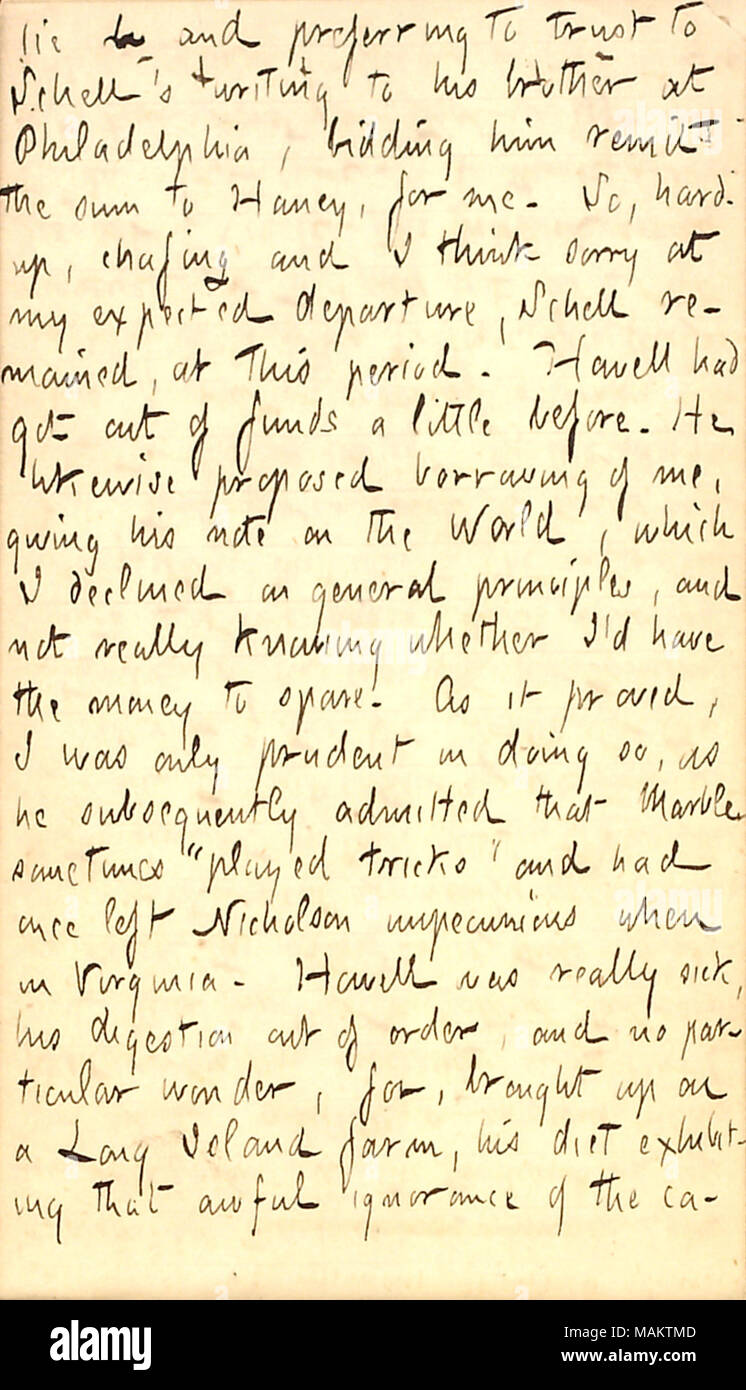 lie and preferring to trust to
Schell's writing to his brother at
Philadelphia, bidding him remit
the sum to Haney, for me. So, hard-
up, chafing and I think sorry at
my expected departure, Schell re-
mained, at this period. Howell had
got out of funds a little before. He
likewise proposed borrowing of me,
giving his note on the World, which
I declined on general principles, and
not really knowing whether I'd have
the money to spare. As it proved,
I was only prudent in doing so, as
he subsequently admitted that Marble
sometimes "played tricks" and had
once left Nicholson impecunious when
in Virginia. Howell was really sick,
his digestion out of order, and no par-
ticular wonder, for, brought up on
a Long Island farm, his diet exhibit-
ing that awful ignorance of the ca-
alamy
Image ID: MAKTMD
www.alamy.com